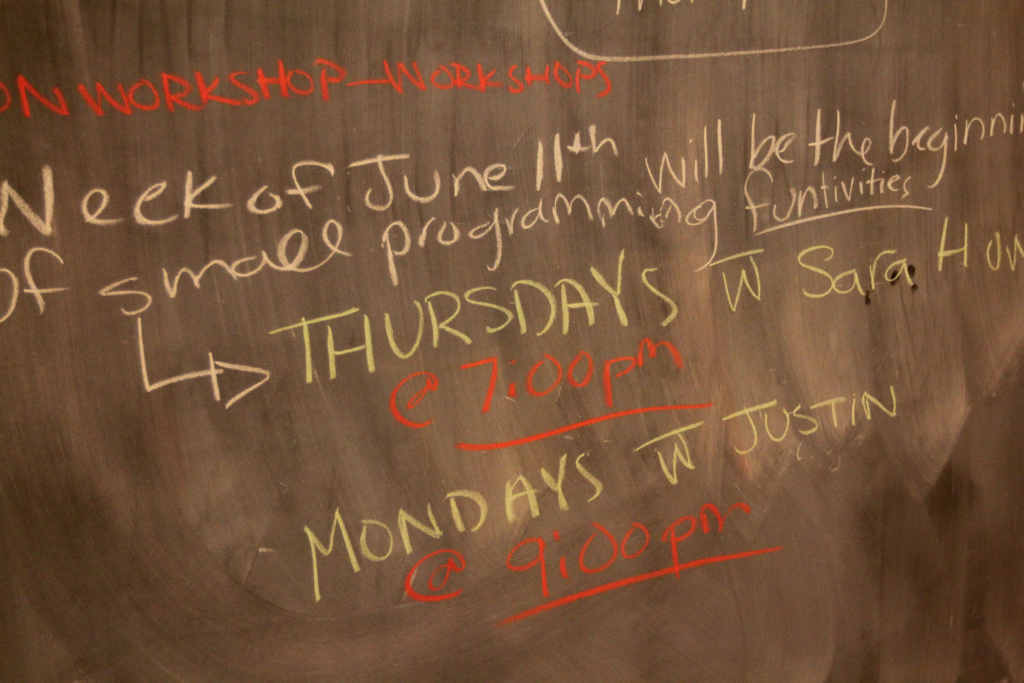 ON WORKSHOP-WORKSHOPS
Week of June 11th will be the beginnin
Of small programming funtivities
THURSDAYS W Sara How
@ 7:00pm
MONDAYS W JUSTIN
@ 9:00pm